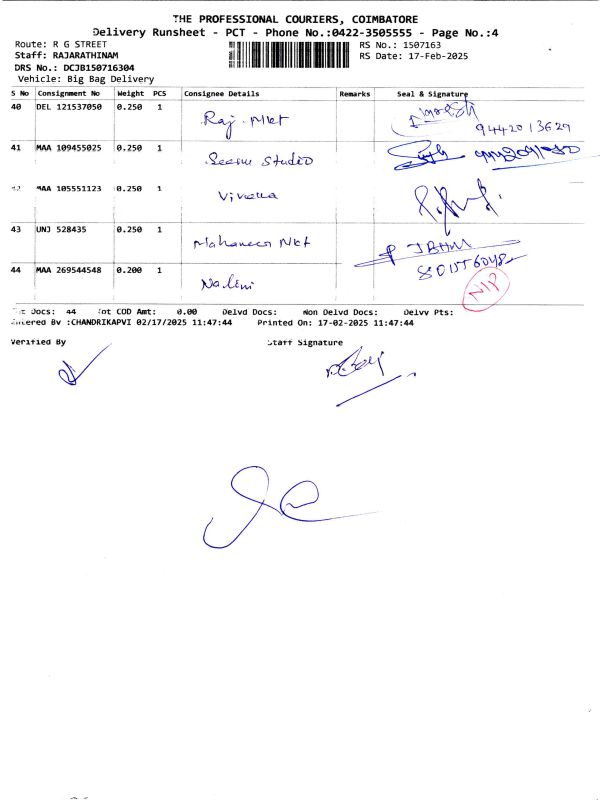 THE PROFESSIONAL COURIERS, COIMBATORE
Delivery Runsheet - PCT - Phone No.:0422-3505555 - Page No.:4
Route: R G STREET RS No.: 1507163
Staff: RAJARATHINAM RS Date: 17-Feb-2025
DRS No.: DCJB150716304
Vehicle: Big Bag Delivery
S No Consignment No Weight PCS Consignee Details Remarks Seal & Signature
40 DEL 121537050 0.250 1 Raj. Mkt 9442013629
41 MAA 109455025 0.250 1 Studio
42 MAA 105551123 0.250 1
43 UNJ 528435 0.250 1 Mahaveer Mkt
44 MAA 269544548 0.200 1 Nalini
NIP
Tot Docs: 44 Tot COD Amt: 0.00 Delvd Docs: Non Delvd Docs: Delvy Pts:
Entered By :CHANDRIKAPVI 02/17/2025 11:47:44 Printed On: 17-02-2025 11:47:44
Verified By Staff Signature